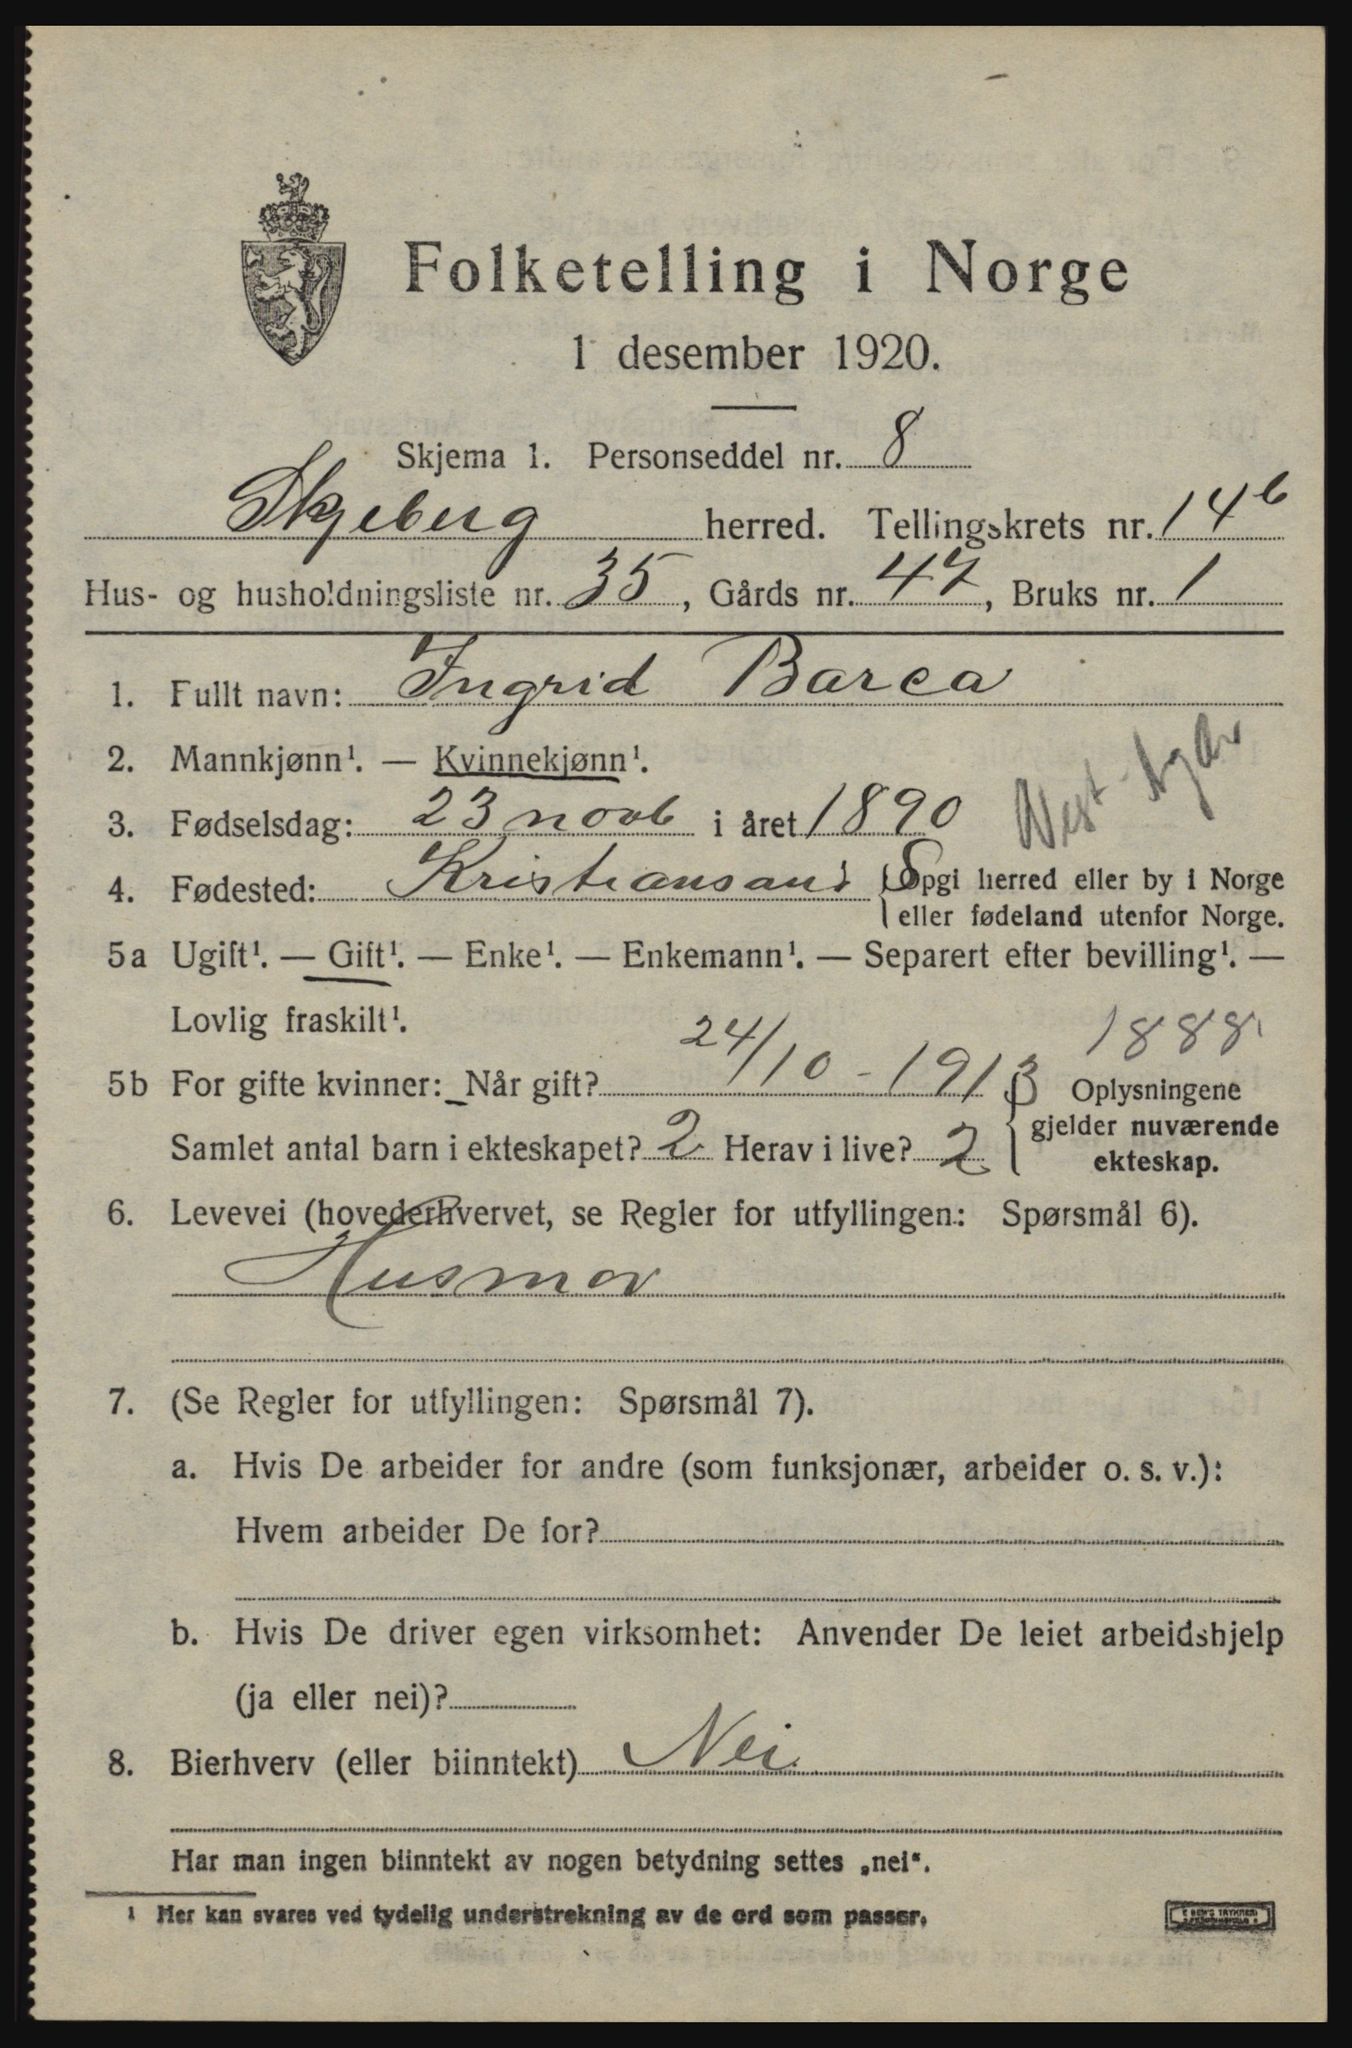 Folketelling i Norge
1 desember 1920.
Skjema 1. Personseddel nr. 8
Skjeberg herred. Tellingskrets nr. 14b
Hus- og husholdningsliste nr. 35, Gårds nr. 47, Bruks nr. 1
1. Fullt navn: Ingrid Barca
2. Mannkjønn¹. — Kvinnekjønn¹.
Vest-Agder
3. Fødselsdag: 23 novb i året 1890
4. Fødested: Kristiansand S {Opgi herred eller by i Norge
eller fødeland utenfor Norge.
5a Ugift¹. — Gift¹. — Enke¹. — Enkemann¹. — Separert efter bevilling¹. —
Lovlig fraskilt¹.
1888
5b For gifte kvinner: Når gift? 24/10 - 1913 { Oplysningene
gjelder nuværende
Samlet antal barn i ekteskapet? 2 Herav i live? 2 ekteskap.
6. Levevei (hovederhvervet, se Regler for utfyllingen: Spørsmål 6).
Husmor
7. (Se Regler for utfyllingen: Spørsmål 7).
a. Hvis De arbeider for andre (som funksjonær, arbeider o. s. v.):
Hvem arbeider De for?
b. Hvis De driver egen virksomhet: Anvender De leiet arbeidshjelp
(ja eller nei)?
8. Bierhverv (eller biinntekt) Nei
Har man ingen biinntekt av nogen betydning settes „nei“.
¹ Her kan svares ved tydelig understrekning av de ord som passer.